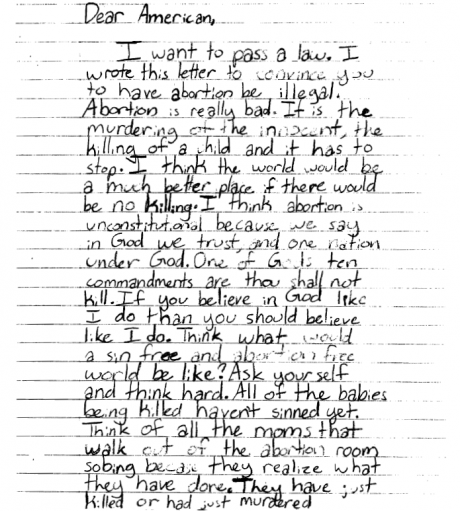 Dear American,
I want to pass a law. I
wrote this letter to convince you
to have abortion be illegal.
Abortion is really bad. It is the
murdering of the innocent, the
killing of a child and it has to
stop. I think the world would be
a much better place if there would
be no killing. I think abortion is
unconstitutional because we say
in God we trust, and one nation
under God. One of Gods ten
commandments are thou shall not
kill. If you believe in God like
I do than you should believe
like I do. Think what would
a sin free and abortion free
world be like? Ask your self
and think hard. All of the babies
being killed havent sinned yet.
Think of all the moms that
walk out of the abortion room
sobing becase they realize what
they have done. They have just
killed or had just murdered